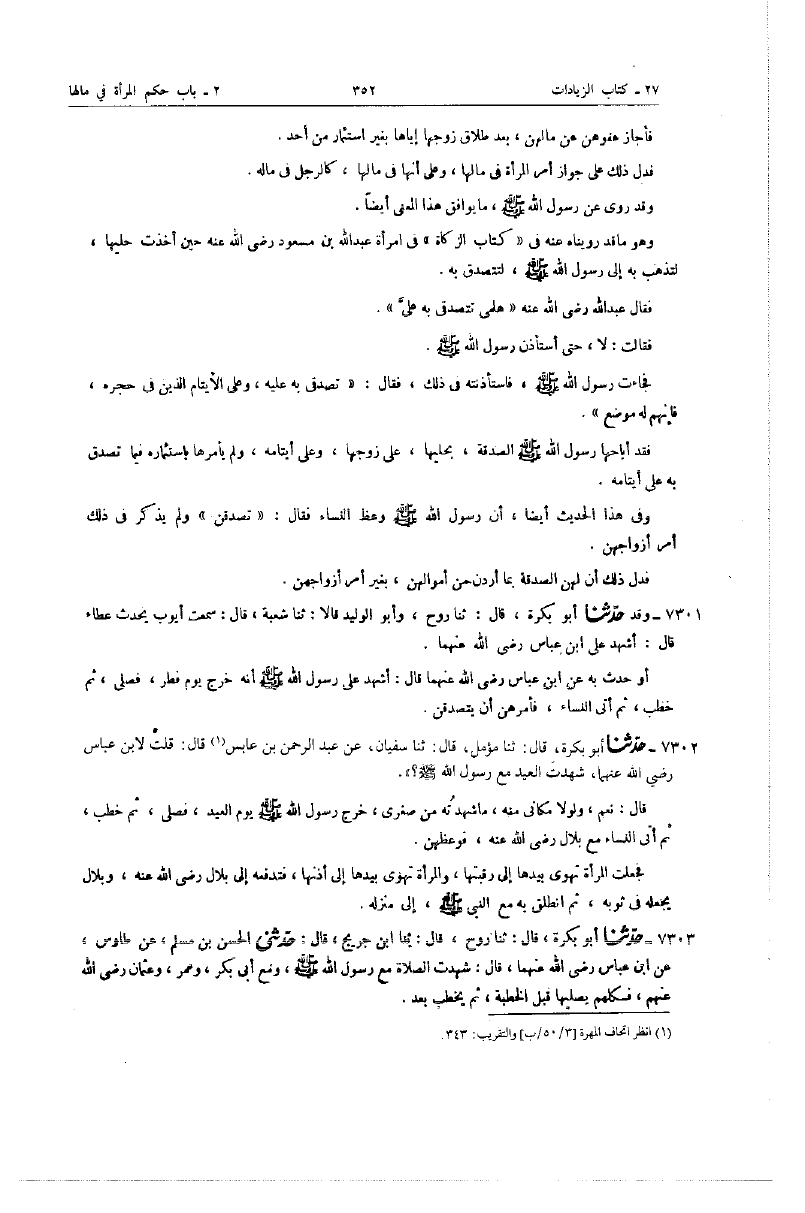 ٢٧ ـ كتاب الزيادات ٣٥٢ ٢ ـ باب حكم المرأة في مالها
فأجاز عفوهن عن مالهن ، بعد طلاق زوجها إياها بغير استئمار من أحد .
فدل ذلك على جواز أمر المرأة فى مالها ، وعلى أنها فى مالها ، كالرجل فى ماله .
وقد روى عن رسول الله ﷺ ، مايوافق هذا المعنى أيضاً .
وهو ماقد رويناه عنه فى « كتاب الزكاة » فى امرأة عبدالله بن مسعود رضى الله عنه حين أخذت حليها ،
لتذهب به إلى رسول الله ﷺ ، لتتصدق به .
فقال عبدالله رضى الله عنه « هلمى تتصدقى به علىَّ » .
فقالت : لا ، حتى أستأذن رسول الله ﷺ .
فجاءت رسول الله ﷺ ، فاستأذنته فى ذلك ، فقال : « تصدقى به عليه ، وعلى الأيتام الذين فى حجره ،
فإنهم له موضع » .
فقد أباحها رسول الله ﷺ الصدقة ، بحليها ، على زوجها ، وعلى أيتامه ، ولم يأمرها باستئماره فيما تصدق
به على أيتامه .
وفى هذا الحديث أيضا ، أن رسول الله ﷺ وعظ النساء فقال : « تصدقن » ولم يذكر فى ذلك
أمر أزواجهن .
فدل ذلك أن لهن الصدقة بما أردن من أموالهن ، بغير أمر أزواجهن .
٧٣٠١ ـ وقد حدّثنا أبو بكرة ، قال : ثنا روح ، وأبو الوليد قالا : ثنا شعبة ، قال : سمعت أيوب يحدث عطاء
قال : أشهد على ابن عباس رضى الله عنهما .
أو حدث به عن ابن عباس رضى الله عنهما قال : أشهد على رسول الله ﷺ أنه خرج يوم فطر ، فصلى ، ثم
خطب ، ثم أتى النساء ، فأمرهن أن يتصدقن .
٧٣٠٢ ـ حدّثنا أبو بكرة، قال: ثنا مؤمل، قال: ثنا سفيان، عن عبد الرحمن بن عابس(١) قال: قلتُ لابن عباس
رضي الله عنهما، شهدتَ العيد مع رسول الله ﷺ؟».
قال : نعم ، ولولا مكانى منه ، ماشهدتُه من صغرى ، خرج رسول الله ﷺ يوم العيد ، فصلى ، ثم خطب ،
ثم أتى النساء مع بلال رضى الله عنه ، فوعظهن .
فجعلت المرأة تهوى بيدها إلى رقبتها ، والمرأة تهوى بيدها إلى أذنها ، فتدفعه إلى بلال رضى الله عنه ، وبلال
يجعله فى ثوبه ، ثم انطلق به مع النبى ﷺ ، إلى منزله .
٧٣٠٣ ـ حدّثنا أبو بكرة ، قال : ثنا روح ، قال : ثنا ابن جريج ، قال : حدّثنى الحسن بن مسلم ، عن طاوس ،
عن ابن عباس رضى الله عنهما ، قال : شهدت الصلاة مع رسول الله ﷺ ، ومع أبى بكر ، وعمر ، وعثمان رضى الله
عنهم ، فكلهم يصليها قبل الخطبة ، ثم يخطب بعد .
(١) انظر اتحاف المهرة [٣/ ٥٠/ب] والتقريب: ٣٤٣.